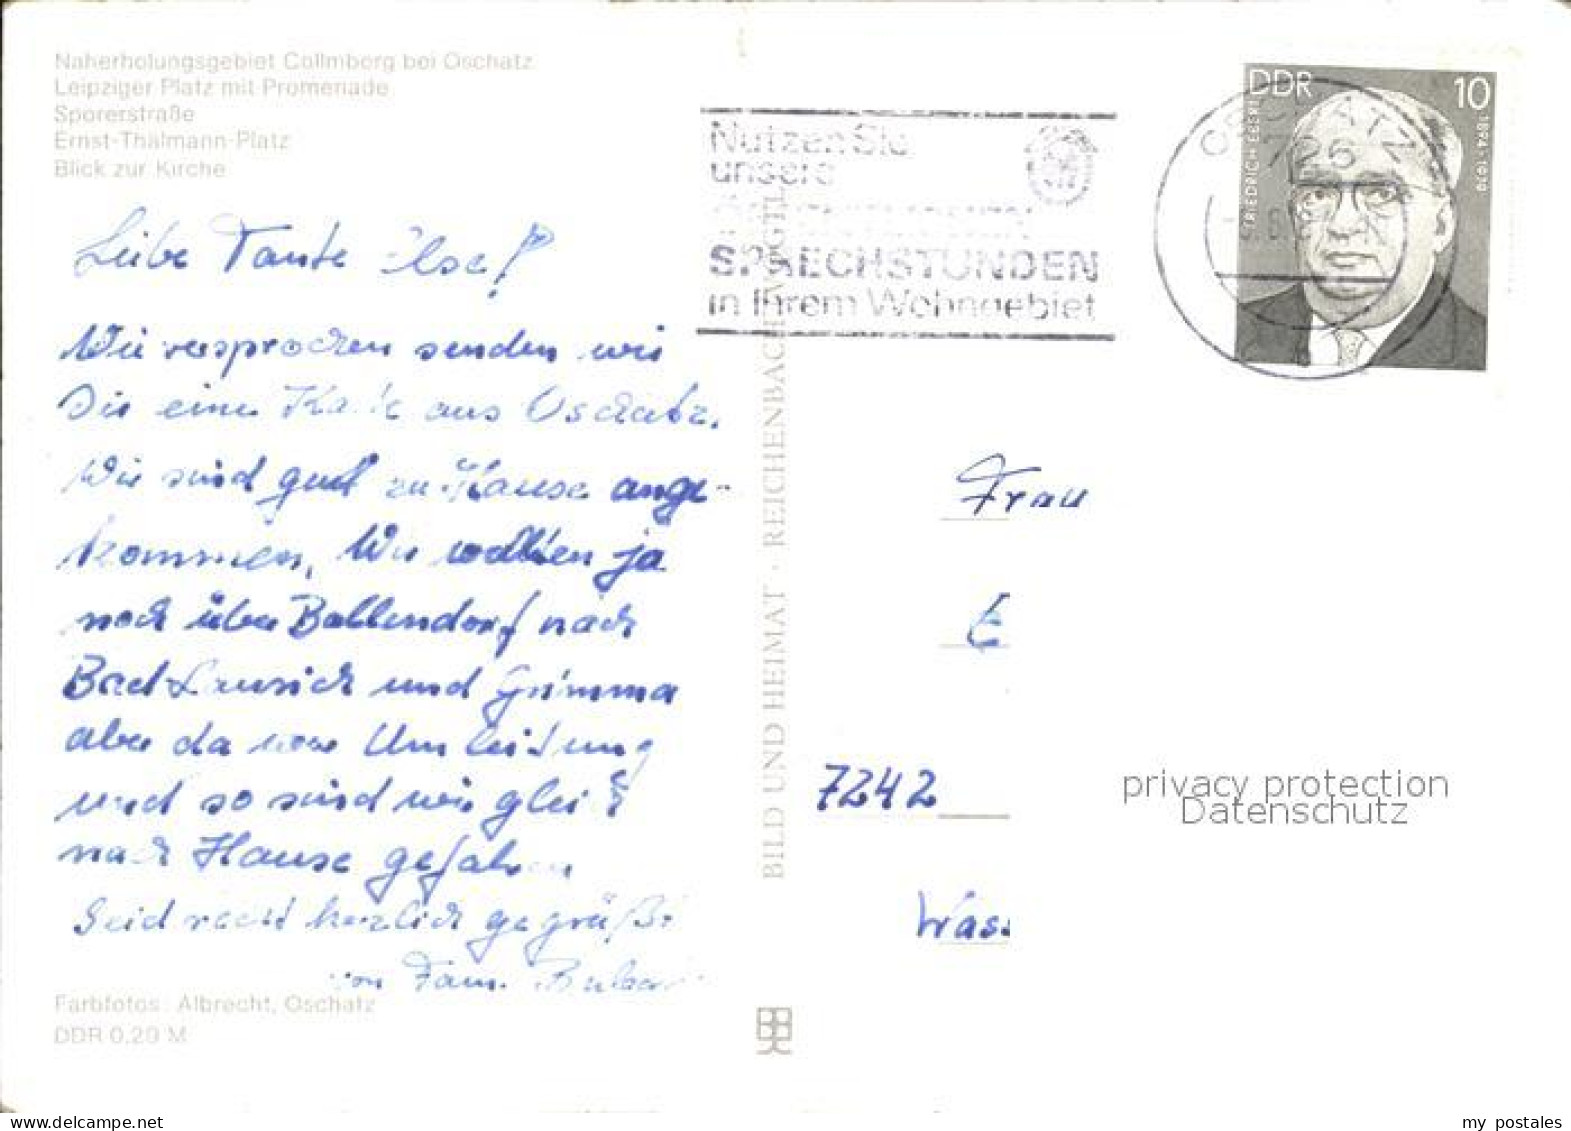 Naherholungsgebiet Collmberg bei Oschatz
Leipziger Platz mit Promenade
Sporerstraße
Ernst-Thälmann-Platz
Blick zur Kirche
Liebe Tante Ilse!
Wie versprochen senden wir
Dir eine Karte aus Oschatz.
Wir sind gut zu Hause ange-
kommen. Wir wollten ja
noch über Ballendorf nach
Bad Lausick und Grimma
aber da war Umleitung
und so sind wir gleich
nach Hause gefahren
Seid recht herzlich gegrüßt
von Fam.
Farbfotos: Albrecht, Oschatz
DDR 0,20 M
BILD UND HEIMAT · REICHENBACH VOGTL
Nutzen Sie
unsere
SPRECHSTUNDEN
in Ihrem Wohngebiet
OSCHATZ
726
DDR 10
FRIEDRICH EBERT 1894-1979
Frau
E
7242
Wass
privacy protection
Datenschutz
www.delcampe.net
my_postales